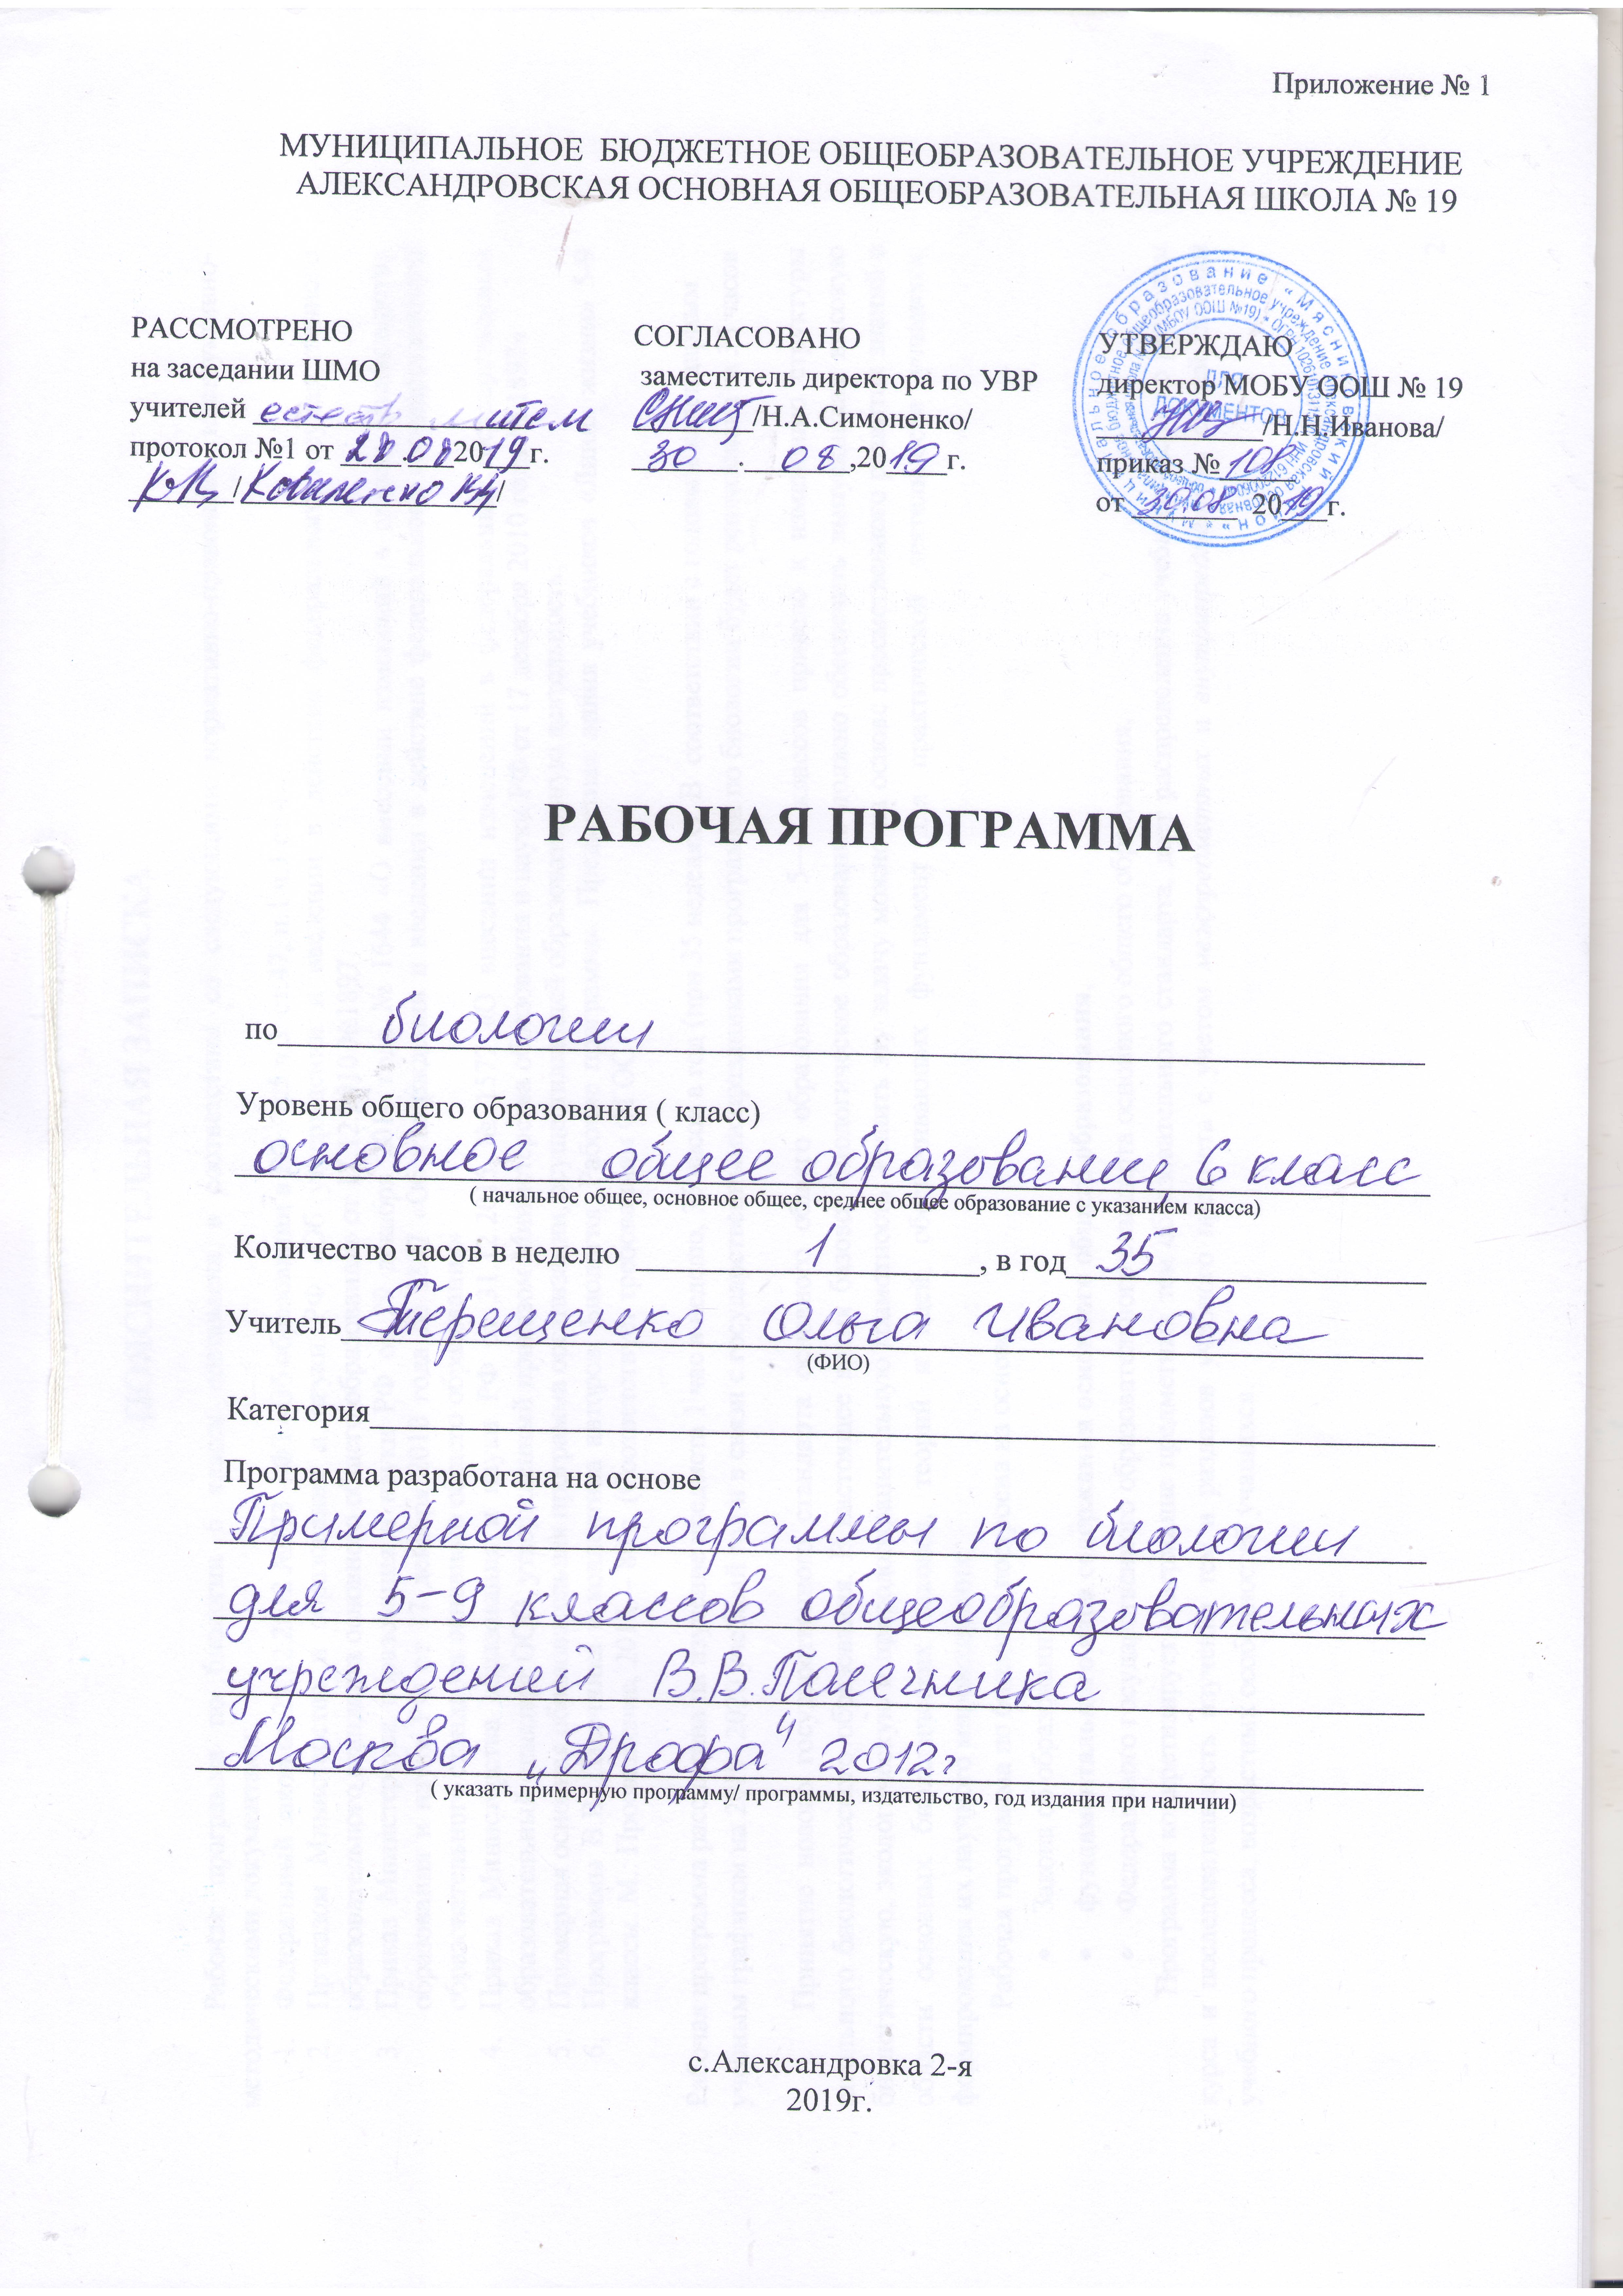 Приложение № 1
МУНИЦИПАЛЬНОЕ БЮДЖЕТНОЕ ОБЩЕОБРАЗОВАТЕЛЬНОЕ УЧРЕЖДЕНИЕ
АЛЕКСАНДРОВСКАЯ ОСНОВНАЯ ОБЩЕОБРАЗОВАТЕЛЬНАЯ ШКОЛА № 19
РАССМОТРЕНО
на заседании ШМО
учителей естеств
протокол №1 от 28.08 2019г.
/Коваленко
СОГЛАСОВАНО
заместитель директора по УВР
/Н.А.Симоненко/
30 . 08 ,2019 г.
УТВЕРЖДАЮ
директор МОБУ ООШ № 19
/Н.Н.Иванова/
приказ № 108
от 30.08 2019г.
ДЛЯ ДОКУМЕНТОВ
РАБОЧАЯ ПРОГРАММА
по биологии
Уровень общего образования ( класс)
основное общее образование, 6 класс
( начальное общее, основное общее, среднее общее образование с указанием класса)
Количество часов в неделю 1 , в год 35
Учитель Терещенко Ольга Ивановна
(ФИО)
Категория
Программа разработана на основе
Примерной программы по биологии
для 5-9 классов общеобразовательных
учреждений В.В.Пасечника
Москва „Дрофа“ 2012г
( указать примерную программу/ программы, издательство, год издания при наличии)
с.Александровка 2-я
2019г.